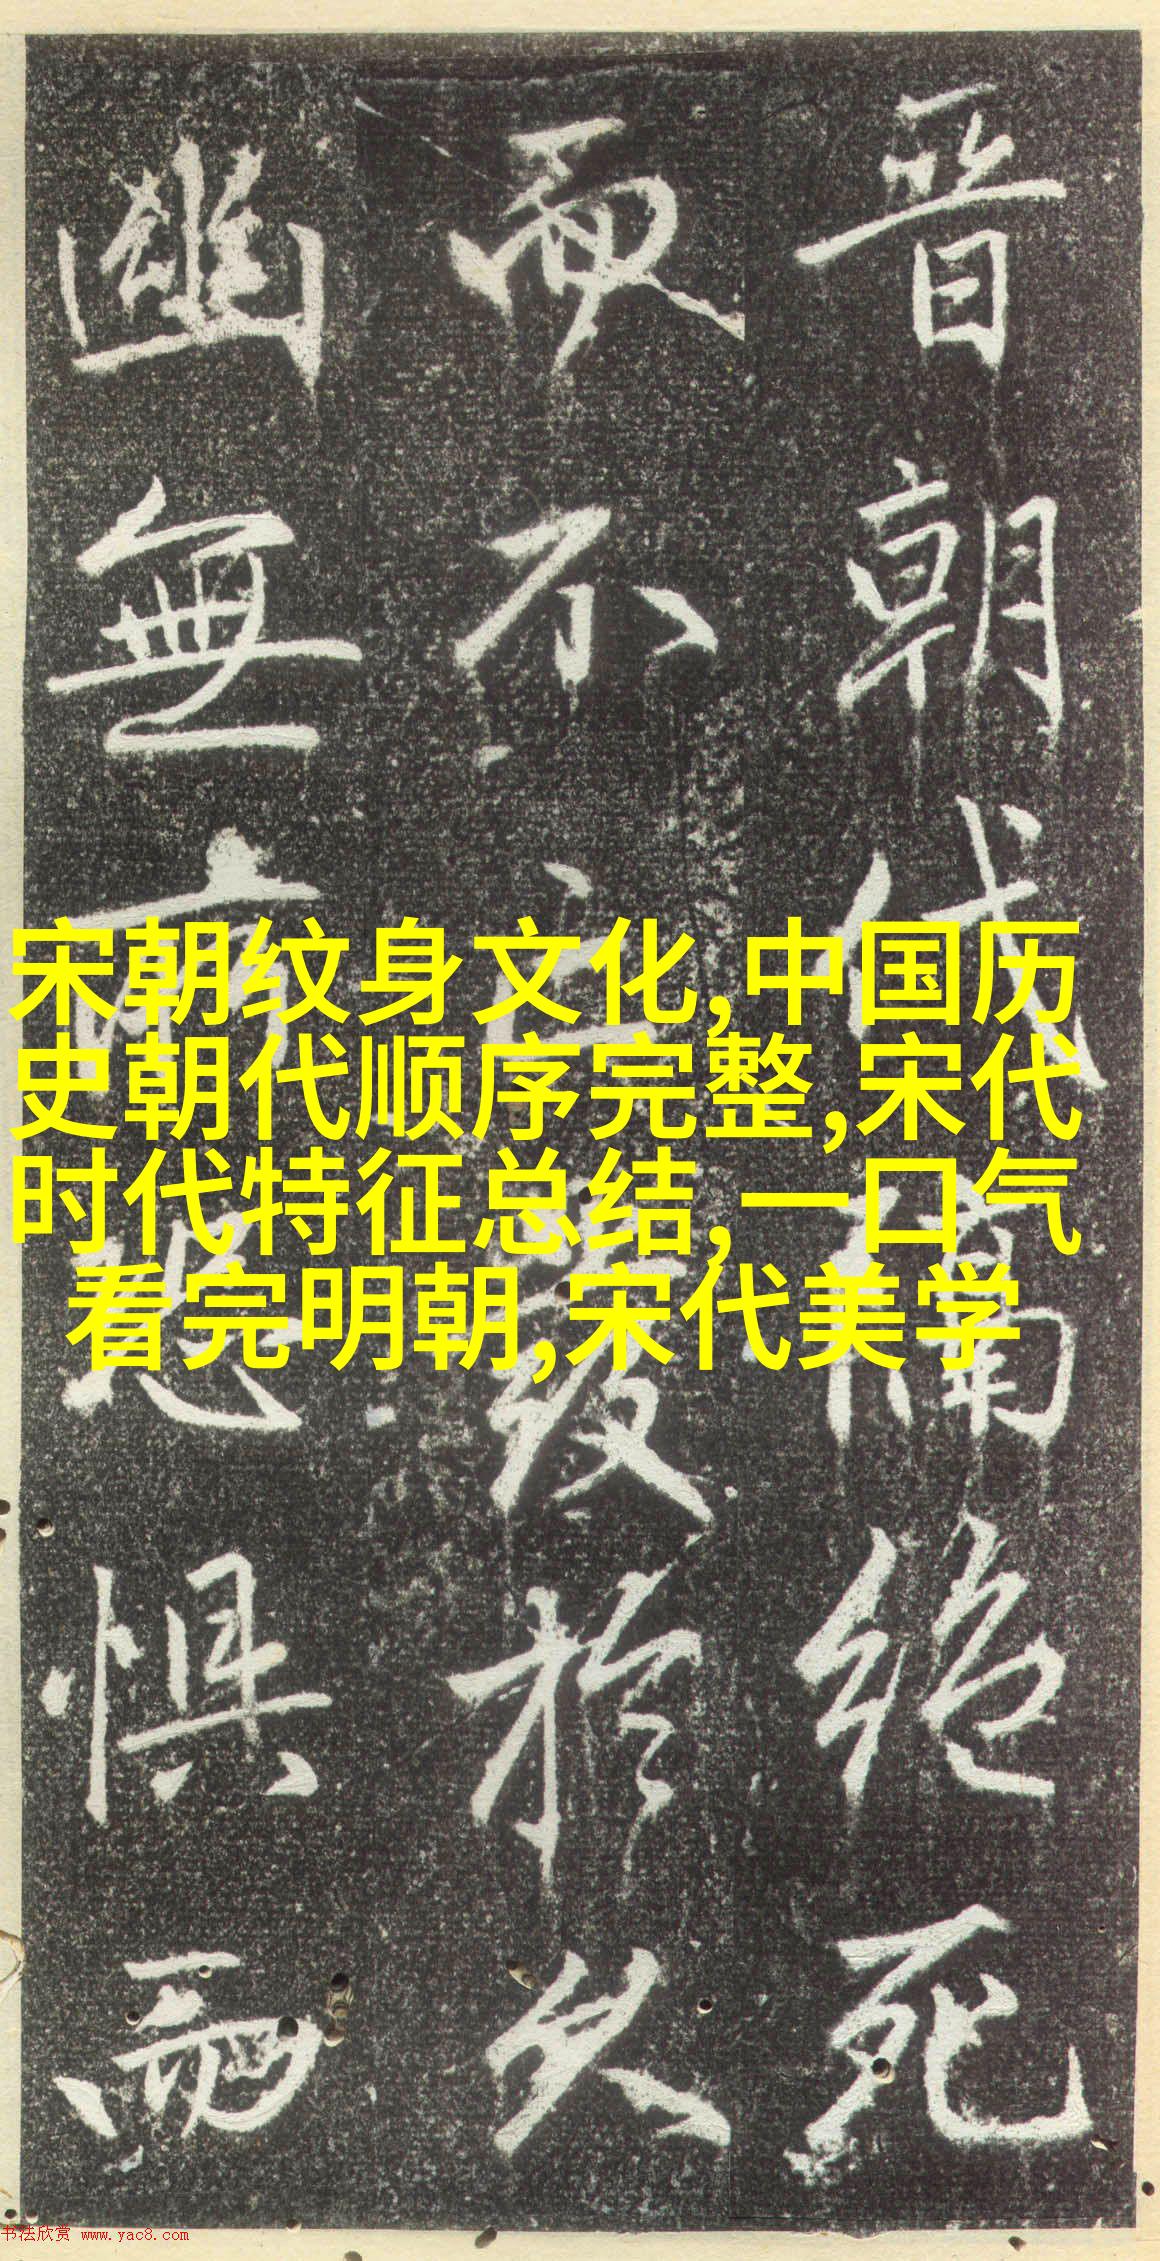 晋朝代隔絶死
不於久
幽無惧
宋朝纹身文化,中国历
史朝代顺序完整,宋代
时代特征总结,一口气
看完明朝,宋代美学
书法欣赏 www.yac8.com